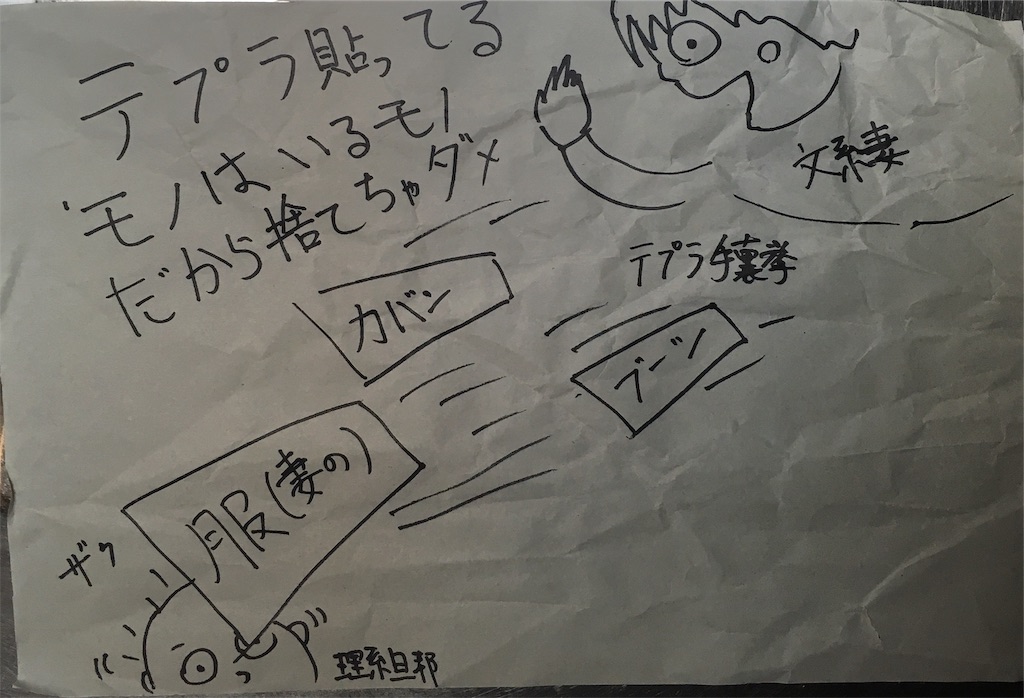 テプラ貼ってる
モノはいるモノ
だから捨てちゃダメ
文系妻
テプラ手裏拳
カバン
ブーツ
服(妻の)
ザク
理系旦那